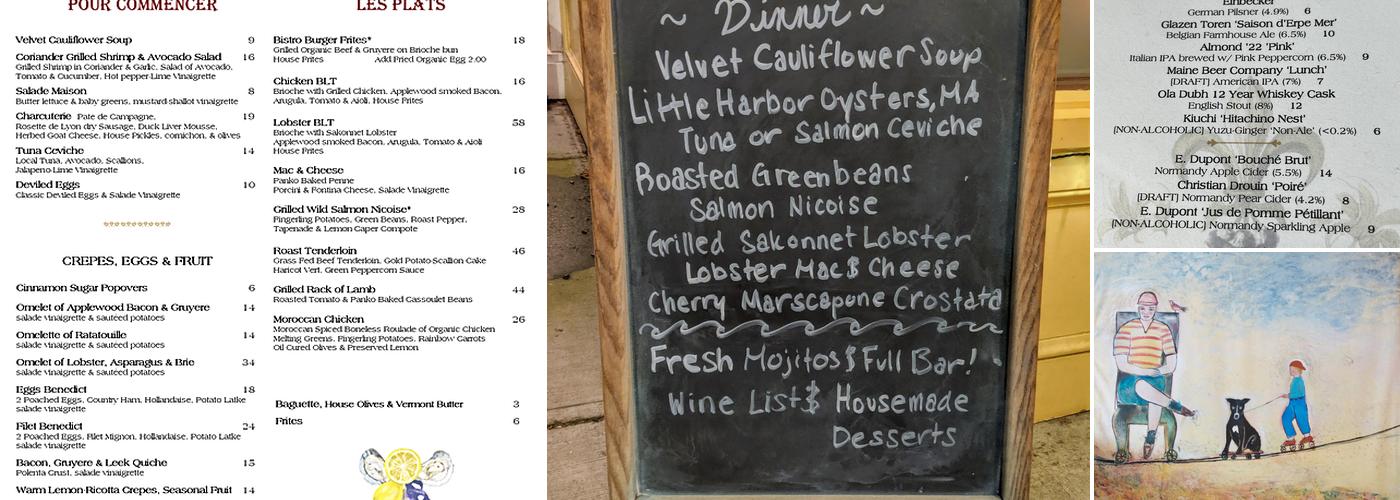 POUR COMMENCER
Velvet Cauliflower Soup 9
Coriander Grilled Shrimp & Avocado Salad 16
Grilled Shrimp in Coriander & Garlic, Salad of Avocado,
Tomato & Cucumber, Hot pepper-Lime Vinaigrette
Salade Maison 8
Butter lettuce & baby greens, mustard-shallot vinaigrette
Charcuterie Pate de Campagne, 19
Rosette de Lyon dry Sausage, Duck Liver Mousse,
Herbed Goat Cheese, House Pickles, cornichon, & olives
Tuna Ceviche 14
Local Tuna, Avocado, Scallions,
Jalapeno-Lime Vinaigrette
Deviled Eggs 10
Classic Deviled Eggs & Salade Vinaigrette
CREPES, EGGS & FRUIT
Cinnamon Sugar Popovers 6
Omelet of Applewood Bacon & Gruyere 14
salade vinaigrette & sautéed potatoes
Omelette of Ratatouille 14
salade vinaigrette & sautéed potatoes
Omelet of Lobster, Asparagus & Brie 34
salade vinaigrette & sautéed potatoes
Eggs Benedict 18
2 Poached Eggs, Country Ham, Hollandaise, Potato Latke
salade vinaigrette
Filet Benedict 24
2 Poached Eggs, Filet Mignon, Hollandaise, Potato Latke
salade vinaigrette
Bacon, Gruyere & Leek Quiche 15
Polenta Crust, salade vinaigrette
Warm Lemon-Ricotta Crepes, Seasonal Fruit 14
LES PLATS
Bistro Burger Frites* 18
Grilled Organic Beef & Gruyere on Brioche bun
House Frites Add Fried Organic Egg 2.00
Chicken BLT 16
Brioche with Grilled Chicken, Applewood smoked Bacon,
Arugula, Tomato & Aioli, House Frites
Lobster BLT 58
Brioche with Sakonnet Lobster
Applewood smoked Bacon, Arugula, Tomato & Aioli
House Frites
Mac & Cheese 16
Panko Baked Penne
Porcini & Fontina Cheese, Salade Vinaigrette
Grilled Wild Salmon Nicoise* 28
Fingerling Potatoes, Green Beans, Roast Pepper,
Tapenade & Lemon Caper Compote
Roast Tenderloin 46
Grass Fed Beef Tenderloin, Gold Potato-Scallion Cake
Haricot Vert, Green Peppercorn Sauce
Grilled Rack of Lamb 44
Roasted Tomato & Panko Baked Cassoulet Beans
Moroccan Chicken 26
Moroccan Spiced Boneless Roulade of Organic Chicken
Melting Greens, Fingerling Potatoes, Rainbow Carrots
Oil Cured Olives & Preserved Lemon
Baguette, House Olives & Vermont Butter 3
Frites 6
~ Dinner ~
Velvet Cauliflower Soup
Little Harbor Oysters, MA
Tuna or Salmon Ceviche
Roasted Greenbeans
Salmon Nicoise
Grilled Sakonnet Lobster
Lobster Mac $ Cheese
Cherry Marscapone Crostata
Fresh Mojitos $ Full Bar!
Wine List $ Housemade
Desserts
Einbecker
German Pilsner (4.9%) 6
Glazen Toren 'Saison d'Erpe Mer'
Belgian Farmhouse Ale (6.5%) 10
Almond '22 'Pink'
Italian IPA brewed w/ Pink Peppercorn (6.5%) 9
Maine Beer Company 'Lunch'
[DRAFT] American IPA (7%) 7
Ola Dubh 12 Year Whiskey Cask
English Stout (8%) 12
Kiuchi 'Hitachino Nest'
[NON-ALCOHOLIC] Yuzu-Ginger 'Non-Ale' (<0.2%) 6
E. Dupont 'Bouché Brut'
Normandy Apple Cider (5.5%) 14
Christian Drouin 'Poiré'
[DRAFT] Normandy Pear Cider (4.2%) 8
E. Dupont 'Jus de Pomme Pétillant'
[NON-ALCOHOLIC] Normandy Sparkling Apple 9